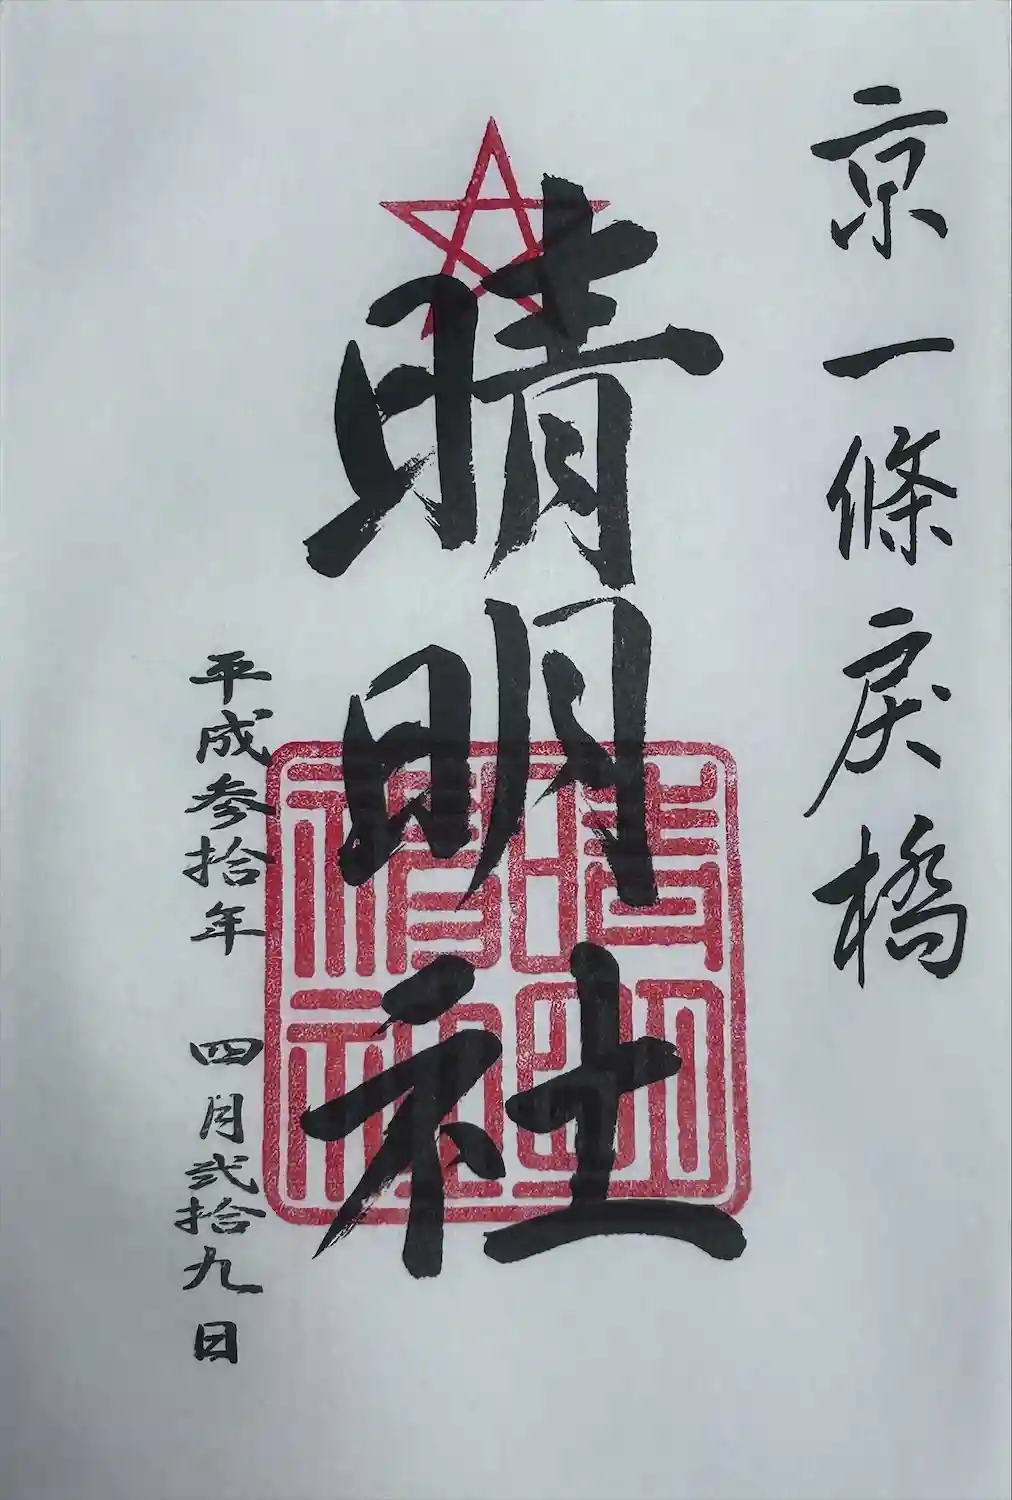 京一條戻橋
晴明社
平成参拾年 四月弐拾九日
晴明神社